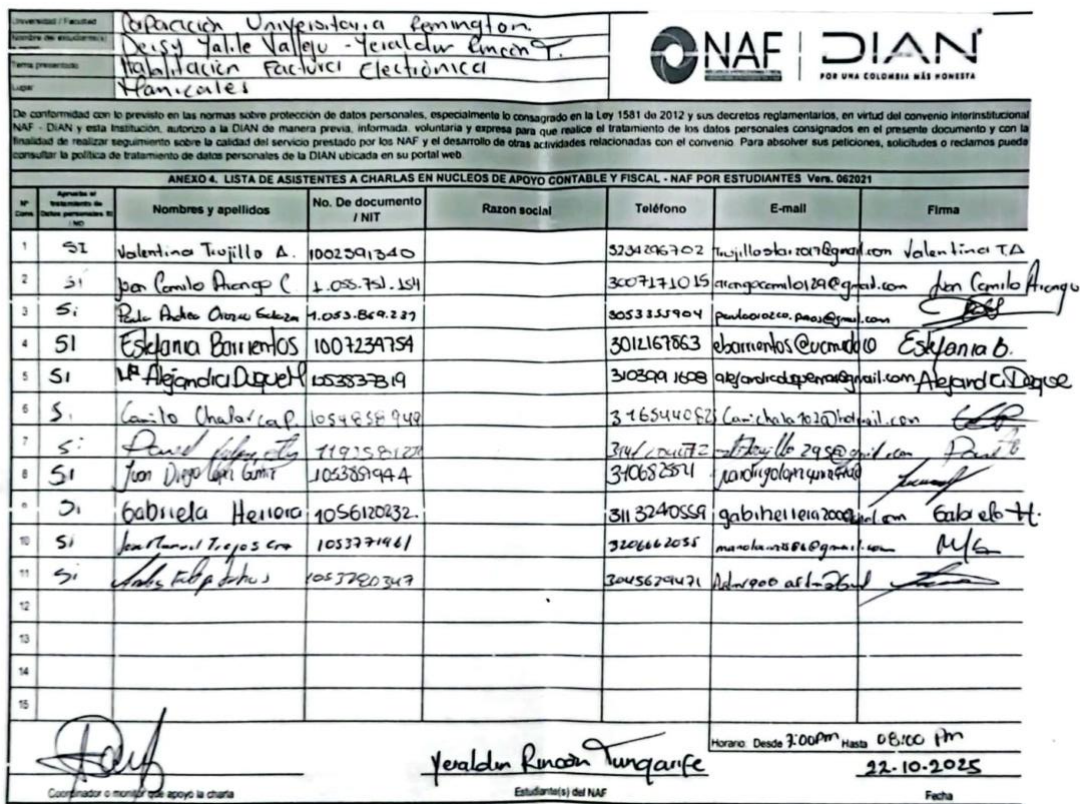 Universidad / Facultad Corporación Universitaria Remington.
Nombre de estudiante(s) Deisy Yalile Vallejo - Yeraldin Rincón T.
Tema presentado Habilitación Factura Electrónica
Lugar Manizales
NAF | DIAN
POR UNA COLOMBIA MÁS HONESTA
De conformidad con lo previsto en las normas sobre protección de datos personales, especialmente lo consagrado en la Ley 1581 de 2012 y sus decretos reglamentarios, en virtud del convenio interinstitucional
NAF - DIAN y esta Institución, autorizo a la DIAN de manera previa, informada, voluntaria y expresa para que realice el tratamiento de los datos personales consignados en el presente documento y con la
finalidad de realizar seguimiento sobre la calidad del servicio prestado por los NAF y el desarrollo de otras actividades relacionadas con el convenio. Para absolver sus peticiones, solicitudes o reclamos pueda
consultar la política de tratamiento de datos personales de la DIAN ubicada en su portal web.
ANEXO 4. LISTA DE ASISTENTES A CHARLAS EN NUCLEOS DE APOYO CONTABLE Y FISCAL - NAF POR ESTUDIANTES Vers. 062021
Nº Cons. Aprueba el tratamiento de Datos personales SI / NO Nombres y apellidos No. De documento / NIT Razon social Teléfono E-mail Firma
1 SI Valentina Trujillo A. 1002591340 3234296702 Valentina T.A
2 si Juan Camilo Arango C. 1.055.751.154 3007171015 arangocamilo129@gmail.com Juan Camilo Arango
3 Si Paula Andrea Orozco 1.053.869.237 3053355904
4 SI Estefania Barrientos 1007234754 3012167863 Estefania B.
5 SI Mª Alejandra Duque H 1053837319 3103991608 Alejandra Duque
6 Si Camilo Chalarca P. 1054858948
7 Si
8 SI Juan Diego 1053859944
9 Si Gabriela Herrera 1056120232. 3113240559 Gabriela H.
10 Si Trejos 1053771461 3206662035
11 Si 1053780347 3045629471
12
13
14
15
Horario: Desde 7:00 Pm Hasta 08:00 Pm
Yeraldin Rincón Tungarife
22-10-2025
Coordinador o monitor que apoyo la charla Estudiante(s) del NAF Fecha